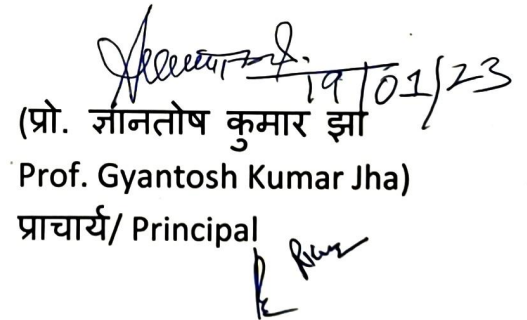 19/01/23
(प्रो. ज्ञानतोष कुमार झा
Prof. Gyantosh Kumar Jha)
प्राचार्य/ Principal